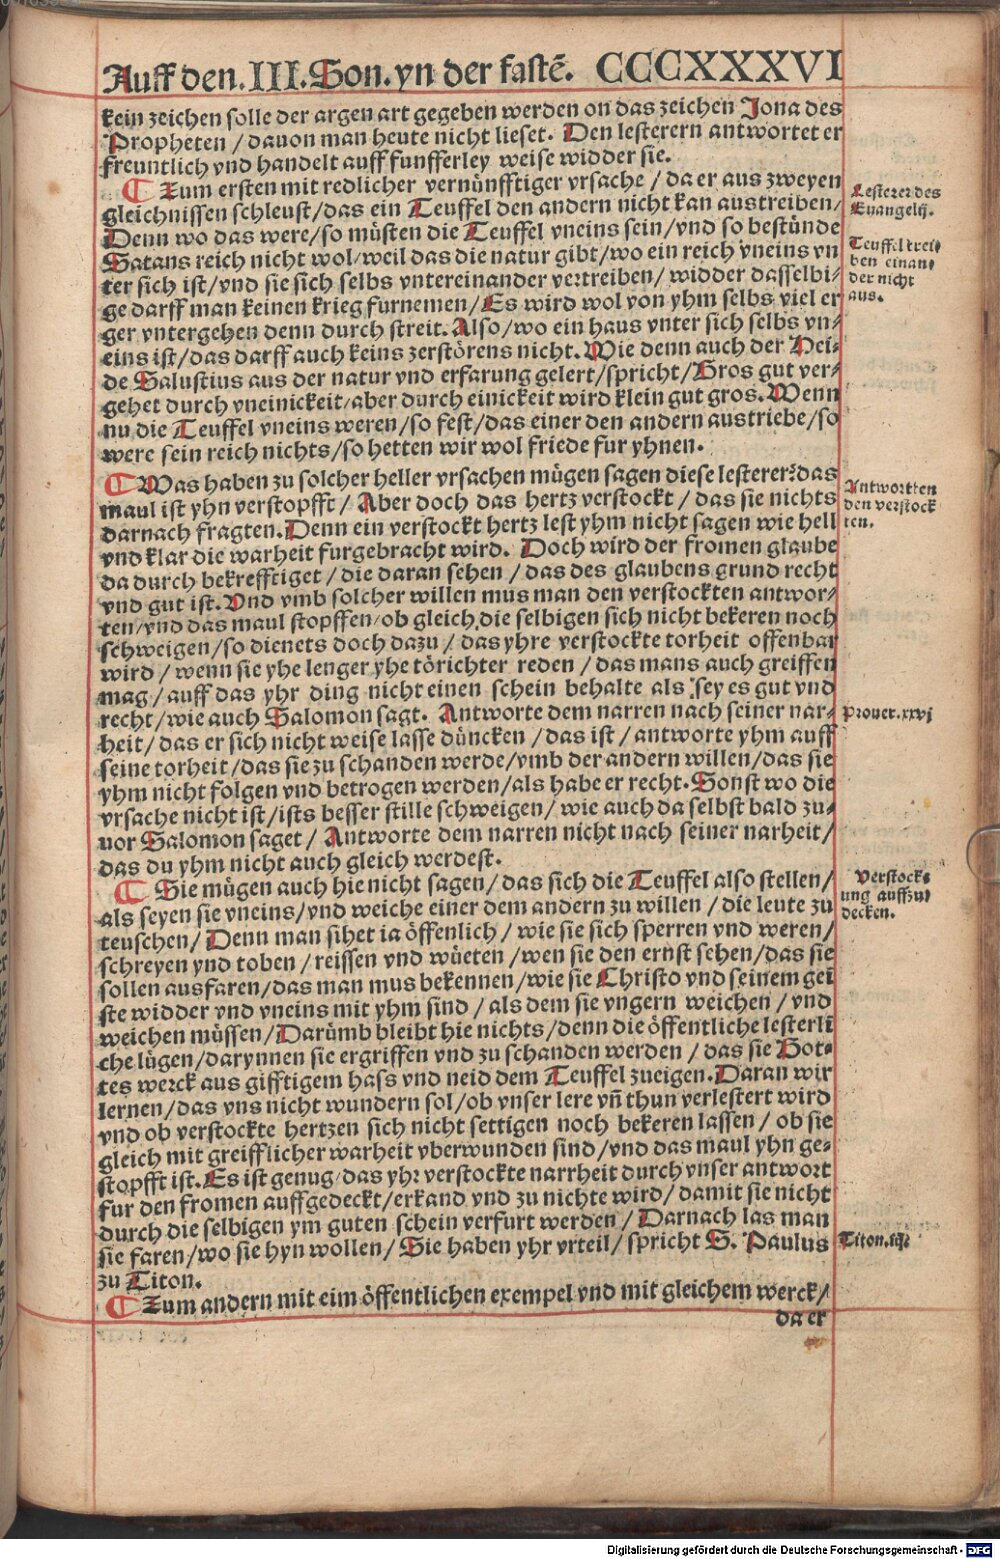 Auff den. III. Son. yn der fastẽ. CCCXXXVI
kein zeichen solle der argen art gegeben werden on das zeichen Jona des
Propheten / dauon man heute nicht lieset. Den lesterern antwortet er
freuntlich vnd handelt auff funfferley weise widder sie.
Zum ersten mit redlicher vernünfftiger vrsache / da er aus zweyen
gleichnissen schleust/das ein Teuffel den andern nicht kan austreiben/
Denn wo das were/so müsten die Teuffel vneins sein/vnd so bestünde
Satans reich nicht wol/weil das die natur gibt/wo ein reich vneins vn
ter sich ist/vnd sie sich selbs vntereinander vertreiben/widder dasselbi-
ge darff man keinen krieg furnemen/Es wird wol von yhm selbs viel er
ger vntergehen denn durch streit. Also/wo ein haus vnter sich selbs vn-
eins ist/das darff auch keins zerstörens nicht. Wie denn auch der Hei-
de Salustius aus der natur vnd erfarung gelert/spricht/Gros gut ver-
gehet durch vneinickeit/aber durch einickeit wird klein gut gros. Wenn
nu die Teuffel vneins weren/so fest/das einer den andern austriebe/so
were sein reich nichts/so hetten wir wol friede fur yhnen.
Lesterer des
Euangelij.
Teuffel trei-
ben einan-
der nicht
aus.
Was haben zu solcher heller vrsachen mügen sagen diese lesterer? das
maul ist yhn verstopfft / Aber doch das hertz verstockt / das sie nichts
darnach fragten. Denn ein verstockt hertz lest yhm nicht sagen wie hell
vnd klar die warheit furgebracht wird. Doch wird der fromen glaube
da durch bekrefftiget / die daran sehen / das des glaubens grund recht
vnd gut ist. Vnd vmb solcher willen mus man den verstockten antwor-
ten/vnd das maul stopffen/ob gleich die selbigen sich nicht bekeren noch
schweigen/so dienets doch dazu / das yhre verstockte torheit offenbar
wird / wenn sie yhe lenger yhe törichter reden / das mans auch greiffen
mag / auff das yhr ding nicht einen schein behalte als sey es gut vnd
recht / wie auch Salomon sagt. Antworte dem narren nach seiner nar-
heit / das er sich nicht weise lasse düncken / das ist / antworte yhm auff
seine torheit /das sie zu schanden werde/vmb der andern willen/das sie
yhm nicht folgen vnd betrogen werden/als habe er recht. Sonst wo die
vrsache nicht ist/ists besser stille schweigen/ wie auch da selbst bald zu-
uor Salomon saget / Antworte dem narren nicht nach seiner narheit/
das du yhm nicht auch gleich werdest.
Antworten
den verstock
ten.
Prouer. xxvj
Sie mügen auch hie nicht sagen/das sich die Teuffel also stellen/
als seyen sie vneins/vnd weiche einer dem andern zu willen / die leute zu
teuschen / Denn man sihet ia öffenlich / wie sie sich sperren vnd weren/
schreyen vnd toben / reissen vnd wüeten /wen sie den ernst sehen/das sie
sollen ausfaren/das man mus bekennen/wie sie Christo vnd seinem gei
ste widder vnd vneins mit yhm sind / als dem sie vngern weichen / vnd
weichen müssen/Darümb bleibt hie nichts/denn die öffentliche lesterli
che lügen/darynnen sie ergriffen vnd zu schanden werden / das sie Got-
tes werck aus gifftigem hass vnd neid dem Teuffel zueigen. Daran wir
lernen/das vns nicht wundern sol/ob vnser lere vñ thun verlestert wird
vnd ob verstockte hertzen sich nicht settigen noch bekeren lassen / ob sie
gleich mit greifflicher warheit vberwunden sind/vnd das maul yhn ge-
stopfft ist. Es ist genug/das yhr verstockte narrheit durch vnser antwort
fur den fromen auffgedeckt/erkand vnd zu nichte wird/ damit sie nicht
durch die selbigen ym guten schein verfurt werden / Darnach las man
sie faren/wo sie hyn wollen/ Sie haben yhr vrteil/ spricht S. Paulus
zu Titon.
Verstock-
ung auffzu-
decken.
Titon. iij.
Zum andern mit eim öffentlichen exempel vnd mit gleichem werck/
da er
Digitalisierung gefördert durch die Deutsche Forschungsgemeinschaft - DFG